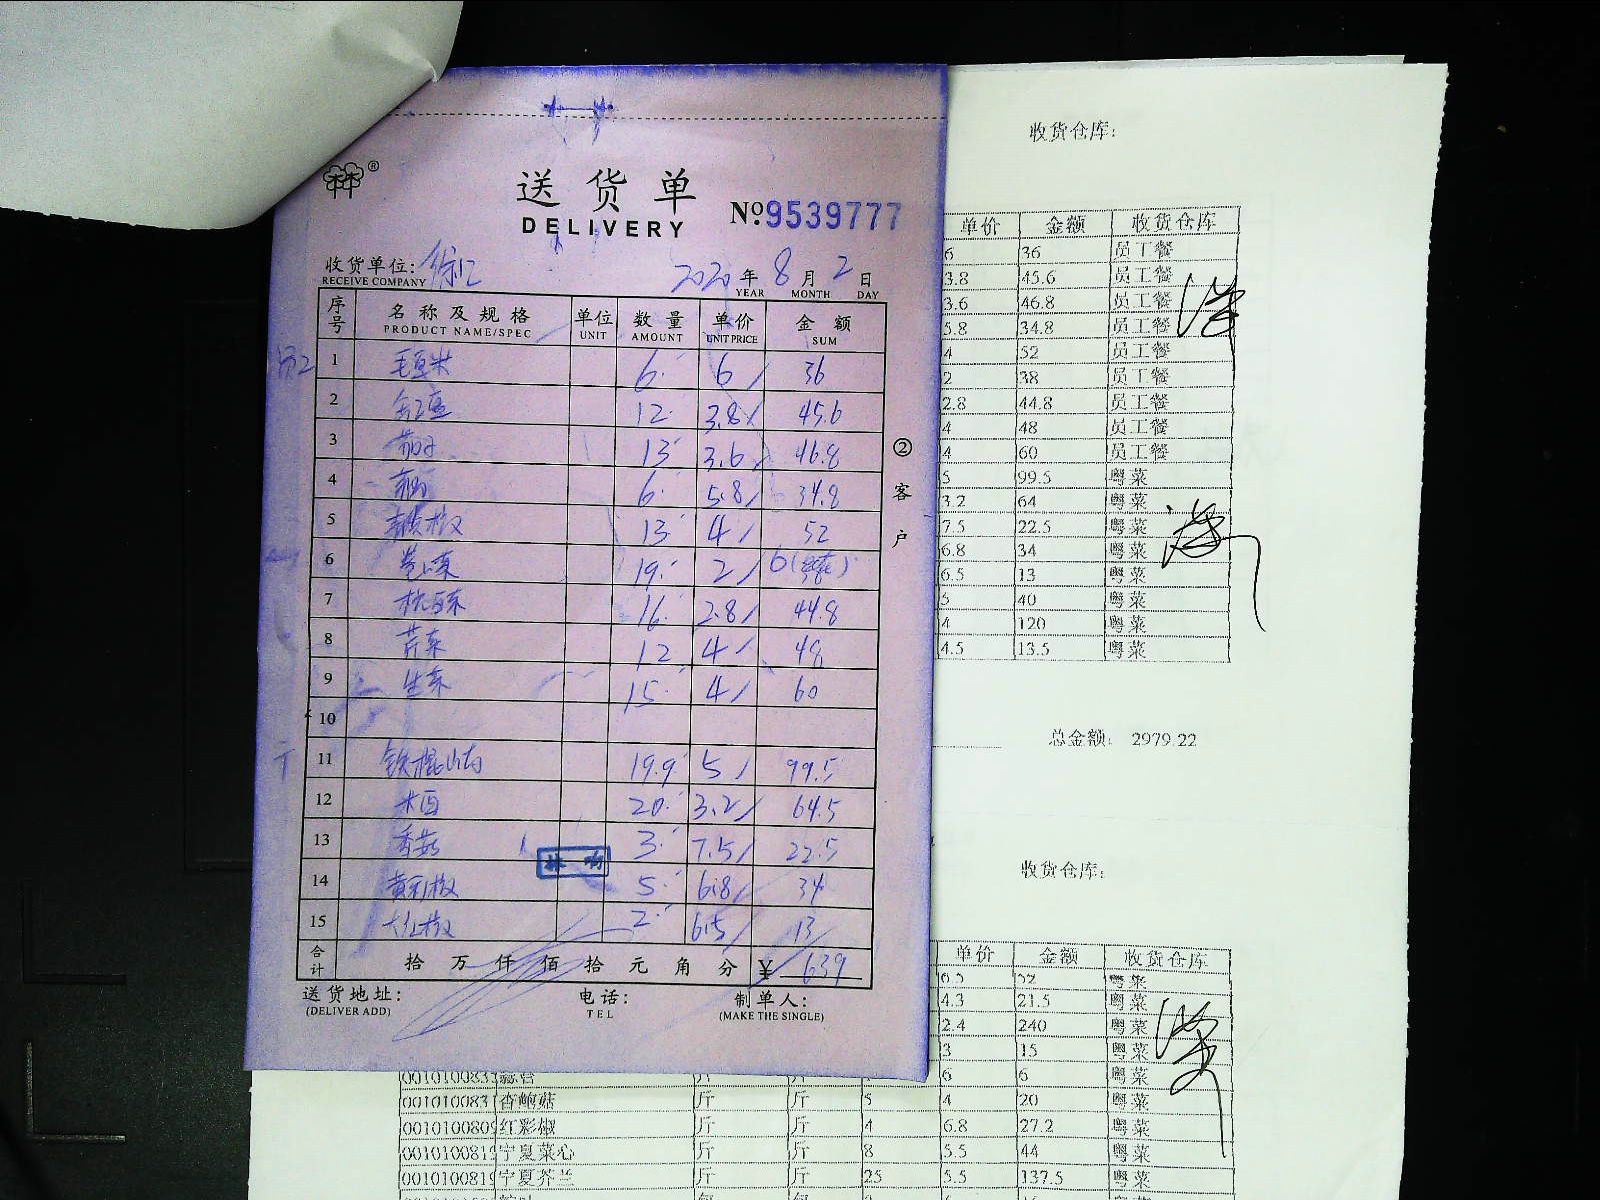 林®
送货单
DELIVERY
№ 9539777
收货单位: 徐汇
RECEIVE COMPANY
2020 年 8 月 2 日
YEAR MONTH DAY
序号 名称及规格 单位 数量 单价 金额
PRODUCT NAME/SPEC UNIT AMOUNT UNIT PRICE SUM
1 毛豆米 6 6 36
2 12 3.8 45.6
3 茄子 13 3.6 46.8
4 6 5.8 34.8
5 13 4 52
6 卷心菜 19 2
7 杭白菜 16 2.8 44.8
8 芹菜 12 4 48
9 生菜 15 4 60
10
11 铁棍山药 19.9 5 99.5
12 20 3.2 64.5
13 香菇 3 7.5 22.5
14 5 6.8 34
15 大红椒 2 6.5 13
合计 拾 万 仟 佰 拾 元 角 分 ¥ 639
送货地址: 电话: 制单人:
(DELIVER ADD) TEL (MAKE THE SINGLE)
② 客户
收货仓库:
单价 金额 收货仓库
6 36 员工餐
3.8 45.6 员工餐
3.6 46.8 员工餐
5.8 34.8 员工餐
4 52 员工餐
2 38 员工餐
2.8 44.8 员工餐
4 48 员工餐
4 60 员工餐
5 99.5 粤菜
3.2 64 粤菜
7.5 22.5 粤菜
6.8 34 粤菜
6.5 13 粤菜
5 40 粤菜
4 120 粤菜
4.5 13.5 粤菜
总金额: 2979.22
收货仓库:
单价 金额 收货仓库
6.5 52 粤菜
4.3 21.5 粤菜
2.4 240 粤菜
3 15 粤菜
斤 斤 6 6 粤菜
001010083 杏鲍菇 斤 斤 5 4 20 粤菜
001010080 红彩椒 斤 斤 4 6.8 27.2 粤菜
001010081 宁夏菜心 斤 斤 8 5.5 44 粤菜
001010081 宁夏芥兰 斤 斤 25 5.5 137.5 粤菜